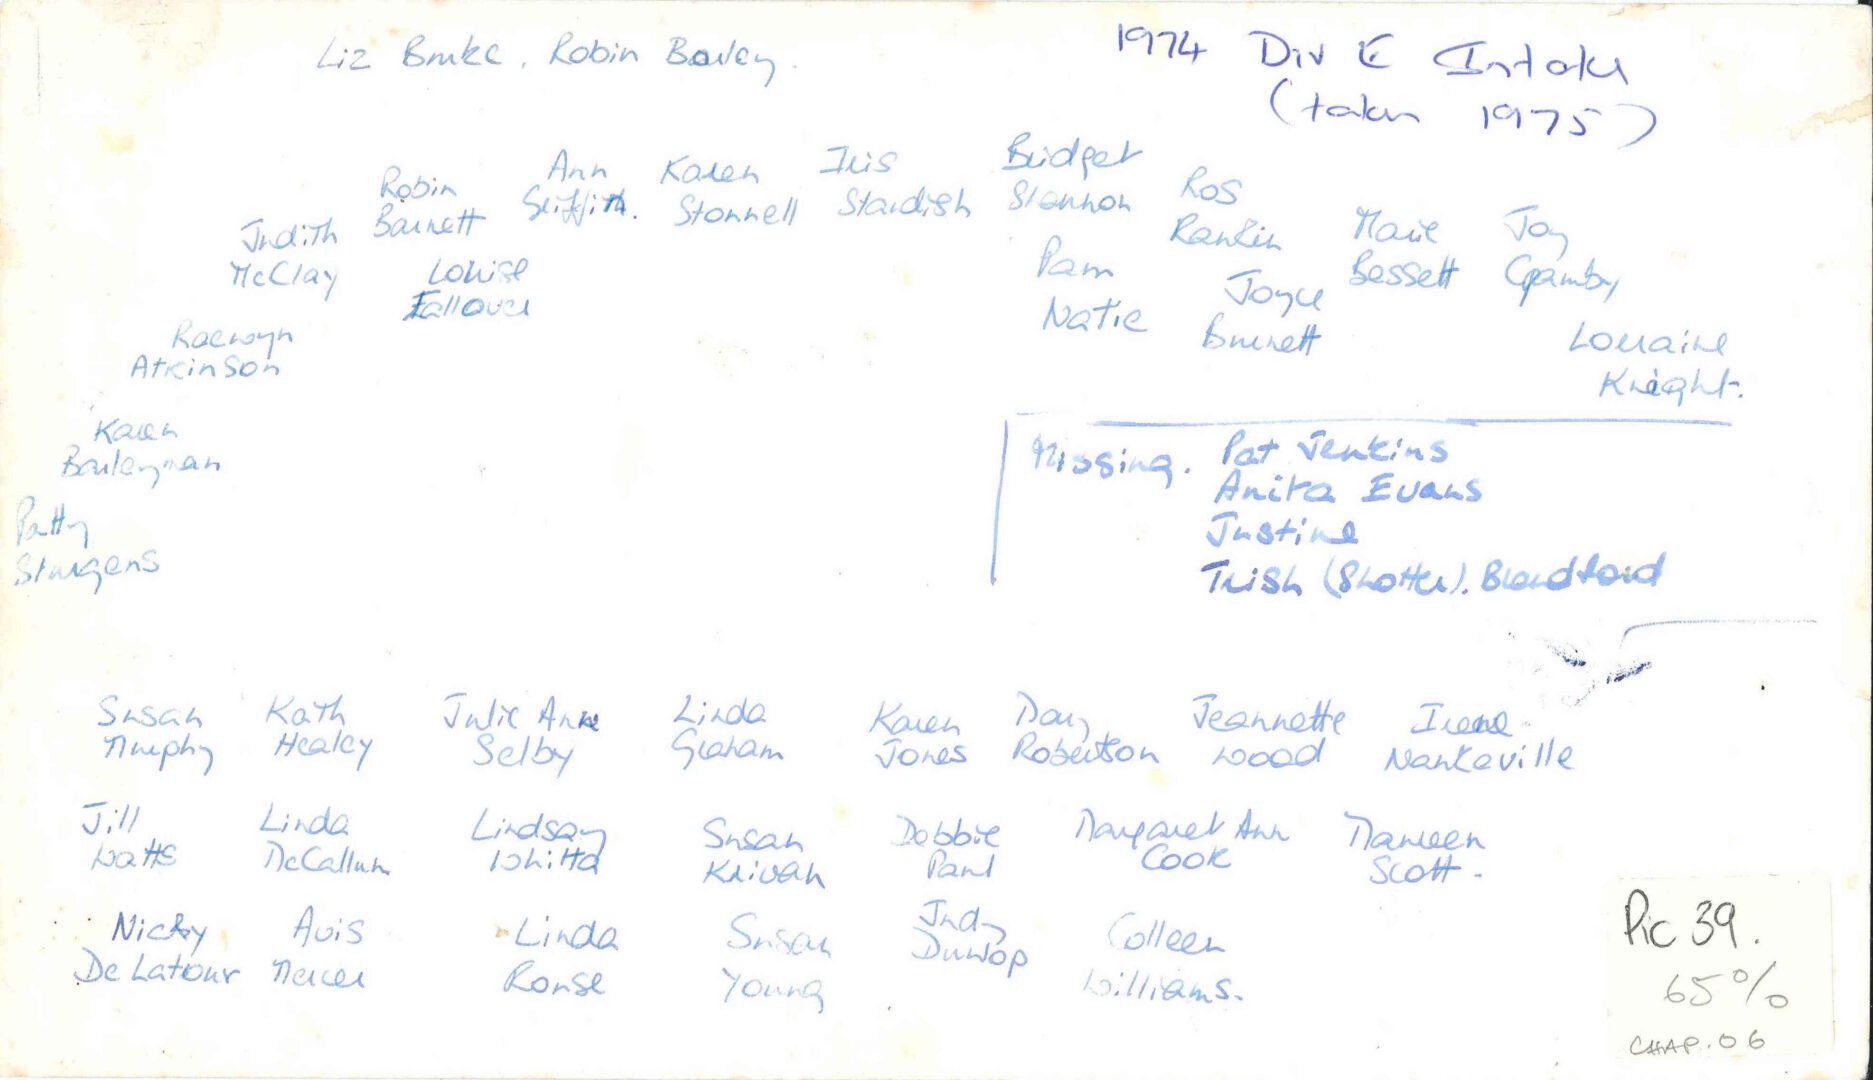 Liz Burke. Robin Bailey.
1974 Div E Intake
(taken 1975)
Robin Barnett
Ann Griffith.
Karen Stonnell
Iris Standish
Bridget Shannon
Ros Rankin
Marie Bessett
Joy Gamby
Judith McClay
Louise Fallover
Pam Natie
Joyce Burnett
Lorraine Knight.
Raewyn Atkinson
Karen
Patty Sturgens
Missing. Pat Jenkins
Anita Evans
Justine
Trish (Shotter). Blandford
Susan Murphy
Kath Healey
Julie Anne Selby
Linda Graham
Karen Jones
Mary Robertson
Jeannette Wood
Irene Nankeville
Jill Watts
Linda McCallum
Lindsay Whitta
Susan Krivan
Debbie Paul
Margaret Ann Cook
Maureen Scott.
Nicky De Latour
Avis Mercer
Linda Ronse
Susan Young
Judy Dunlop
Colleen Williams.
Pic 39.
65%
CHAP.06